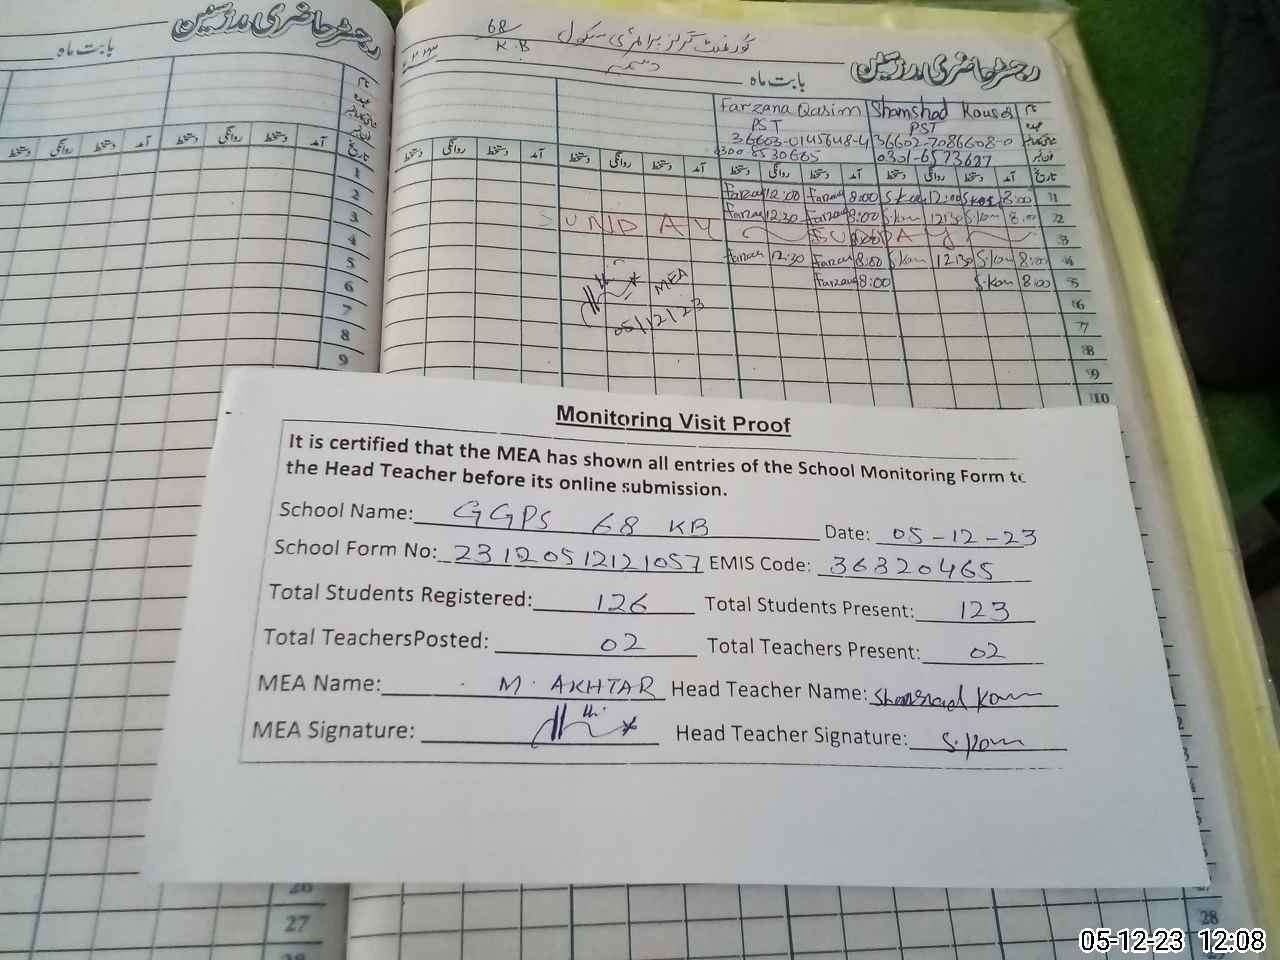 رجسٹر حاضری مدرسین
بابت ماہ
نام
عہدہ
تاریخ
آمد دستخط روانگی دستخط آمد دستخط روانگی دستخط
1
2
3
4
5
6
7
8
9
26
27
28
68
K.B
گورنمنٹ گرلز پرائمری سکول
رجسٹر حاضری مدرسین
بابت ماہ دسمبر
نام Shamshad Kousar Farzana Qasim
عہدہ PST PST
36602-7086608-0 36603-0145648-4
0301-6573627 0300-8530665
تاریخ آمد دستخط روانگی دستخط آمد دستخط روانگی دستخط آمد دستخط روانگی دستخط آمد دستخط روانگی دستخط
Farzan 12:00 Farzan 8:00 S.Kou 12:00 S.Kou 8:00 1
Farzan 12:30 Farzan 8:00 S.Kou 12:30 S.Kou 8:00 2
SUNDAY SUNDAY 3
Farzan 12:30 Farzan 8:00 S.Kou 12:30 S.Kou 8:00 4
Farzan 8:00 S.Kou 8:00 5
MEA
05/12/23
6
7
8
9
10
Monitoring Visit Proof
It is certified that the MEA has shown all entries of the School Monitoring Form to
the Head Teacher before its online submission.
School Name: GGPS 68 KB Date: 05-12-23
School Form No: 23120512121057 EMIS Code: 36320465
Total Students Registered: 126 Total Students Present: 123
Total TeachersPosted: 02 Total Teachers Present: 02
MEA Name: M. AKHTAR Head Teacher Name: Shamshad Kou
MEA Signature: Head Teacher Signature: S.Kou
28
05-12-23 12:08